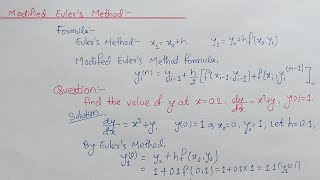 Modified Euler's Method:-
Formula:-
Euler's Method:- x₁ = x₀+h y₁ = y₀+hf(x₀,y₀)
Modified Euler's Method Formula,
y₁⁽ⁿ⁾ = yᵢ₋₁ + h/2 [f(xᵢ₋₁,yᵢ₋₁)+f(xᵢ,yᵢ⁽ⁿ⁻¹⁾]
Question:-
Find the value of y at x=0.2, dy/dx = x²+y, y(0)=1.
Solution
dy/dx = x²+y, y(0)=1 ⇒ x₀=0, y₀=1, Let h=0.1,
By Euler's Method,
y₁⁽⁰⁾ = y₀+hf(x₀,y₀)
= 1+0.1f(0,1)=1+0.1×1=1.1